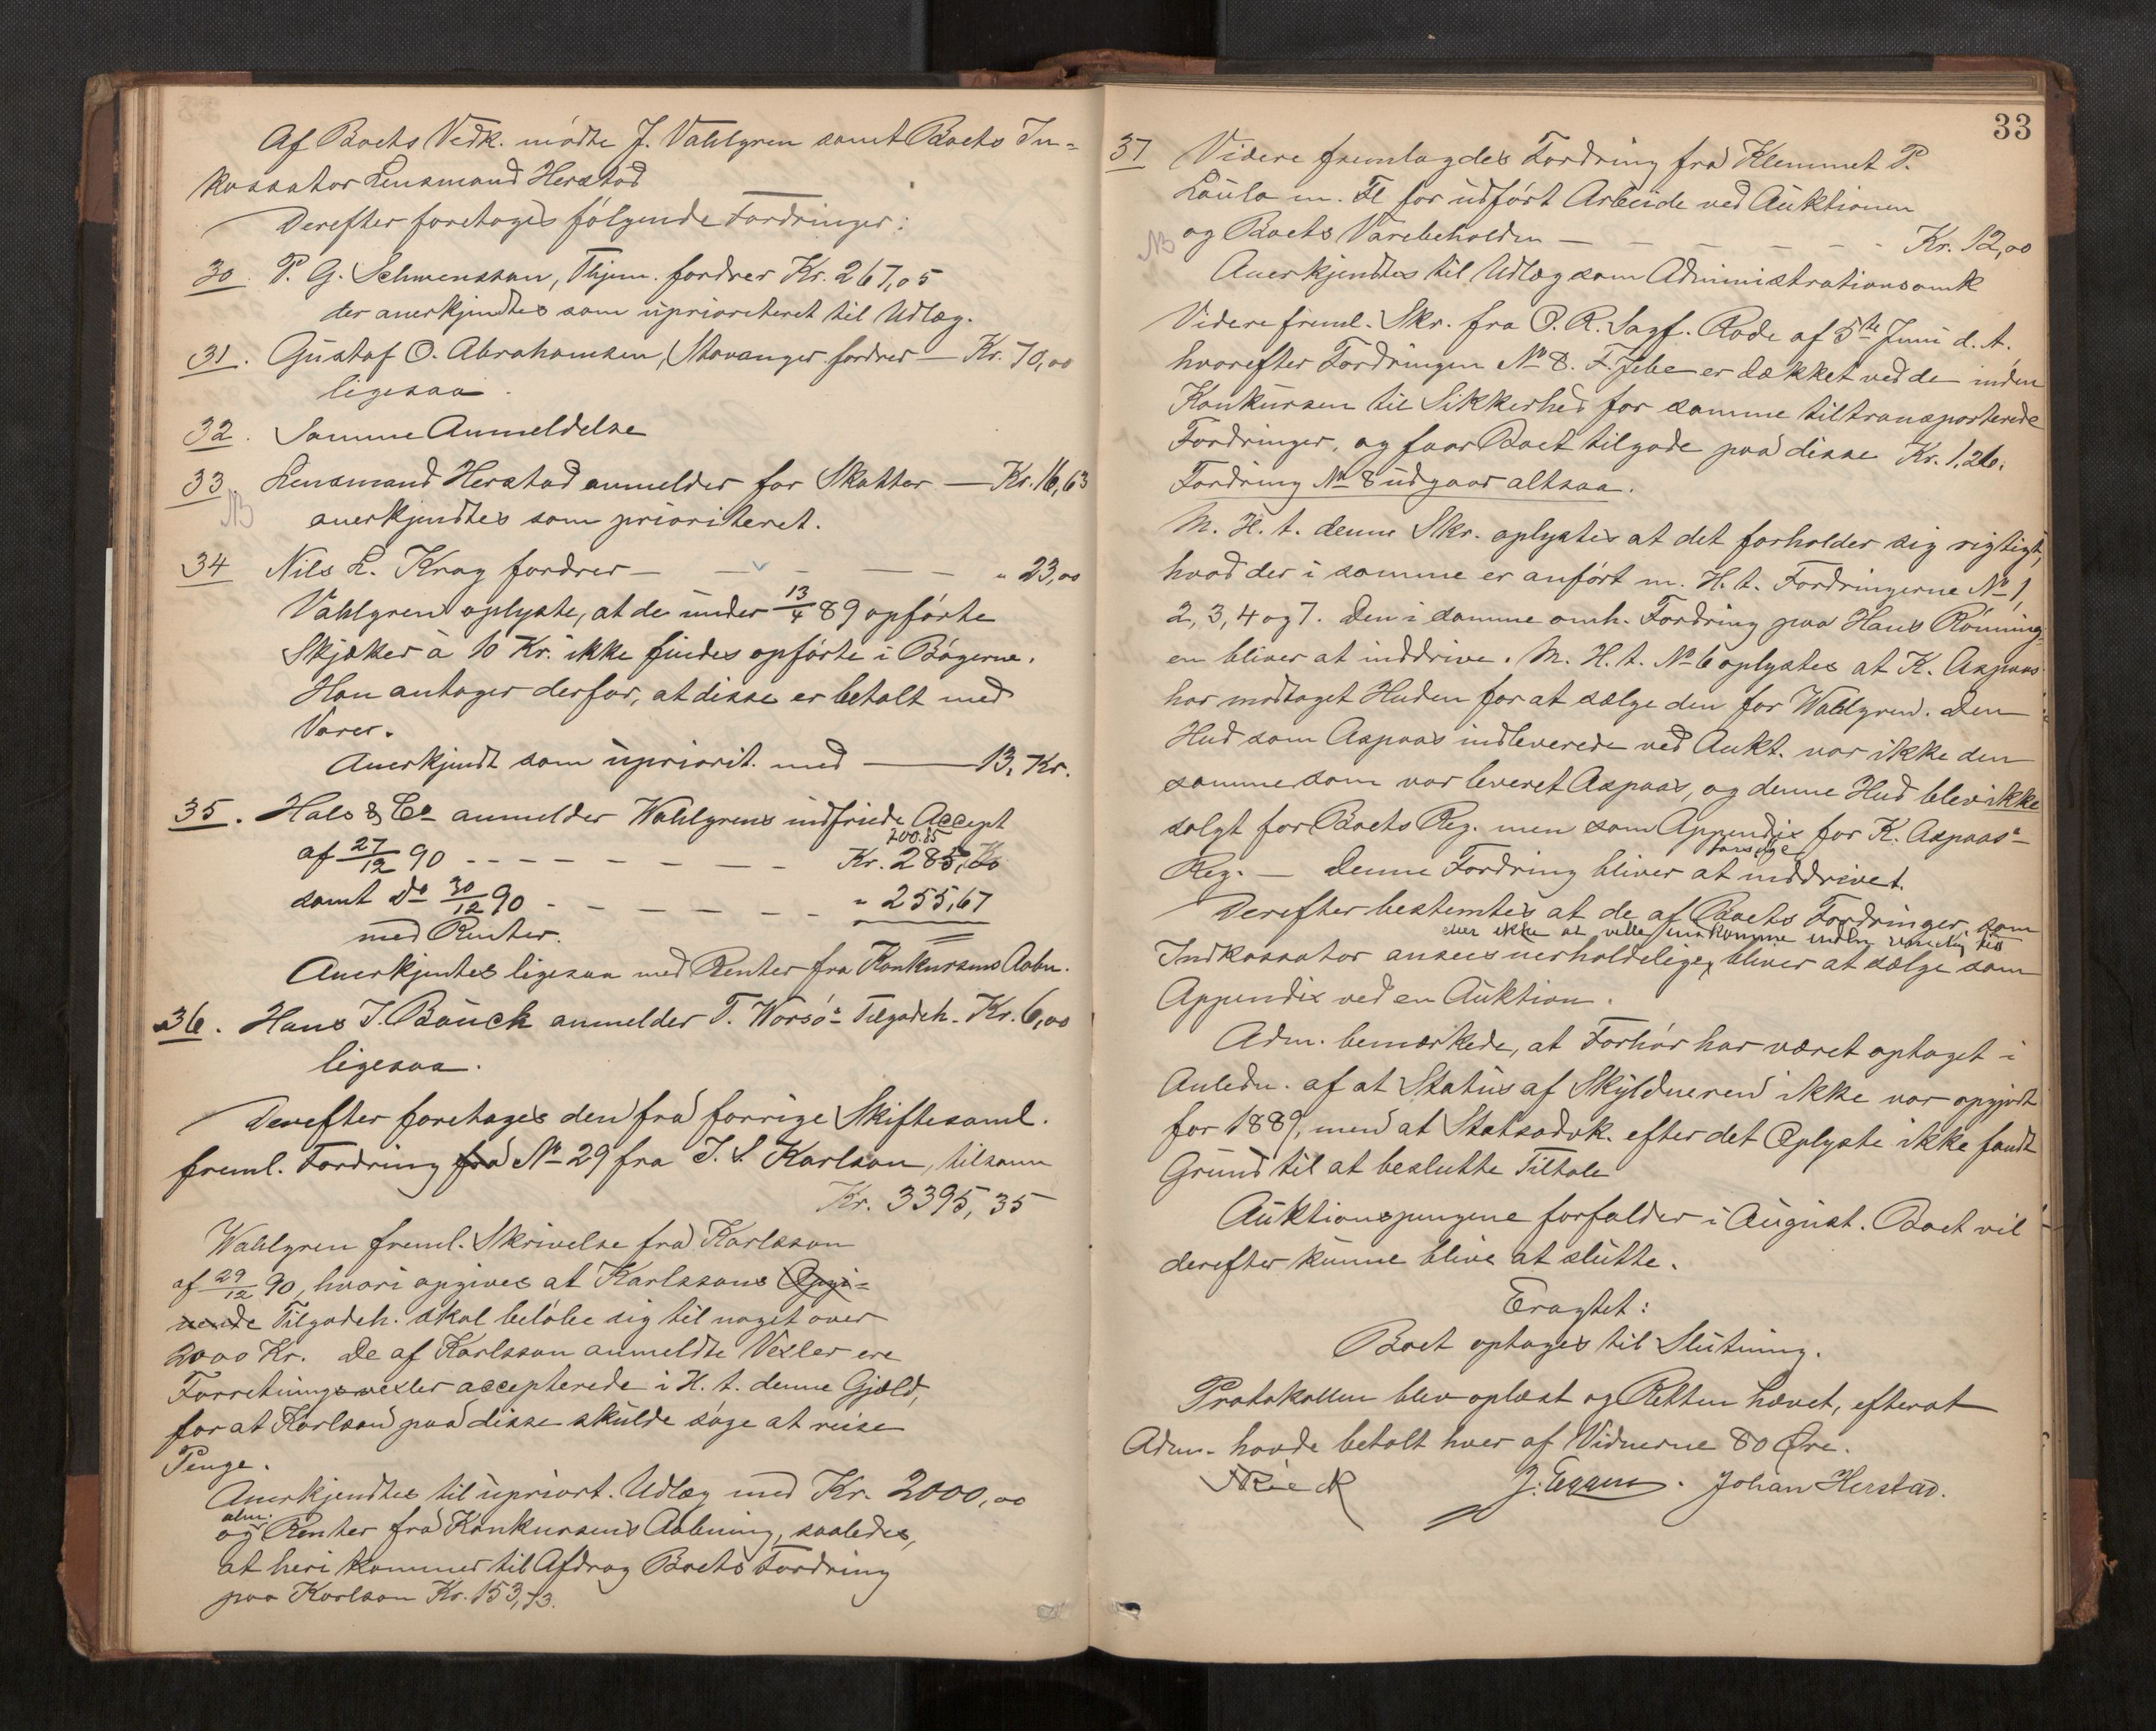 Af Boets Vedk. mödte J. Vahlgren samt Boets In-
kassator Lensmand Herstad
Derefter foretoges fölgende Fordringer:
30. P. G. Schmensson, Thjem. fordrer Kr. 267,05
der anerkjendtes som uprioriteret til Udlæg.
31. Gustaf O. Abrahamsen, Stavanger fordrer — Kr. 70,00
ligesaa.
32. Samme Anmeldelse
33 Lensmand Herstad anmelder for Skatter — Kr. 16,63
NB anerkjendtes som prioriteret.
34 Nils L. Krag fordrer — — — — — " 23,00
Vahlgren oplyste, at de under 13/4 89 opförte
Skjæker à 10 Kr. ikke findes opförte i Bögerne.
Han antager derfor, at disse er betalt med
Varer.
Anerkjendt som upriorit. med — 13, Kr.
35. Hals & Co anmelder Wahlgrens indfriede Accept
200.85
af 27/12 90 - - - - - - - - Kr. 285,60
samt do 30/12 90 - - - - - - - " 255,67
med Renter.
Anerkjentes ligesaa med Renter fra Konkursens Aabn.
36. Hans J. Bauck anmelder T. Worsös Tilgodeh. Kr. 6,00
ligesaa.
Derefter foretoges den fra forrige Skiftesaml.
freml. Fordring fra No 29 fra J. S. Karlson, tilsamm
Kr. 3395,35
Wahlgren freml. Skrivelse fra Karlsson
af 29/12 90, hvori opgives at Karlssons Opgi-
vende Tilgodeh. skal belöbe sig til noget over
2000 Kr. De af Karlsson anmeldte Vexler ere
Forretningsvexler accepterede i H. t. denne Gjæld,
for at Karlson paa disse skulde söge at reise
Penge.
Anerkjendtes til upriort. Udlæg med Kr. 2000,00
alm.
og Renter fra Konkursens Aabning, saaledes,
at heri kommer til Afdrag Boets Fordring
paa Karlson Kr. 153,73.
33
37 Videre fremlagdes Fordring fra Klemmet P.
Laula m. Fl for udfört Arbeide ved Auktionen
NB og Boets Varebeholdn — — — — — — Kr. 12,00
Anerkjendtes til Udlæg som Administrationsomk
Videre freml. Skr. fra O. R. Sagf. Rode af 5te Juni d. A.
hvorefter Fordringen No 8. F. Jebe er dækket ved de inden
Konkursen til Sikkerhed for samme tiltransporterede
Fordringer, og faar Boet tilgode paa disse Kr. 1,26.
Fordring No 8 udgaar altsaa.
M. H. t. denne Skr. oplystes at det forholder sig rigtigt,
hvad der i samme er anfört m. H. t. Fordringerne No 1,
2, 3, 4 og 7. Den i samme omh. Fordring paa Hans Rönning-
en bliver at inddrive. M. H. t. No 6 oplystes at K. Aspaas
har modtaget Huden for at sælge den for Wahlgren. Den
Hud som Aspaas indleverede ved Aukt. var ikke den
samme som var leveret Aspaas, og denne Hud blev ikke
solgt for Boets Reg. men som Appendix for K. Aspaas's
forsöge
Reg. — Denne Fordring bliver at inddrivet.
Derefter bestemtes at de af Boets Fordringer, som
eller ikke at ville indkomme inden rimelig tid
Indkassator ansees uerholdelige, bliver at sælge som
Appendix ved en Auktion.
Adm. bemærkede, at Forhör har været optaget i
Anledn. af at Status af Skyldneren ikke var opgjort
for 1889, men at Statsadvk. efter det Oplyste ikke fandt
Grund til at beslutte Tiltale
Auktionspengene forfalder i August. Boet vil
derefter kunne blive at slutte.
Eragtet:
Boet optages til Slutning.
Protokollen blev oplæst og Retten hævet, efterat
Adm. havde betalt hver af Vidnerne 80 Øre.
J. Eggen. Johan Herstad.